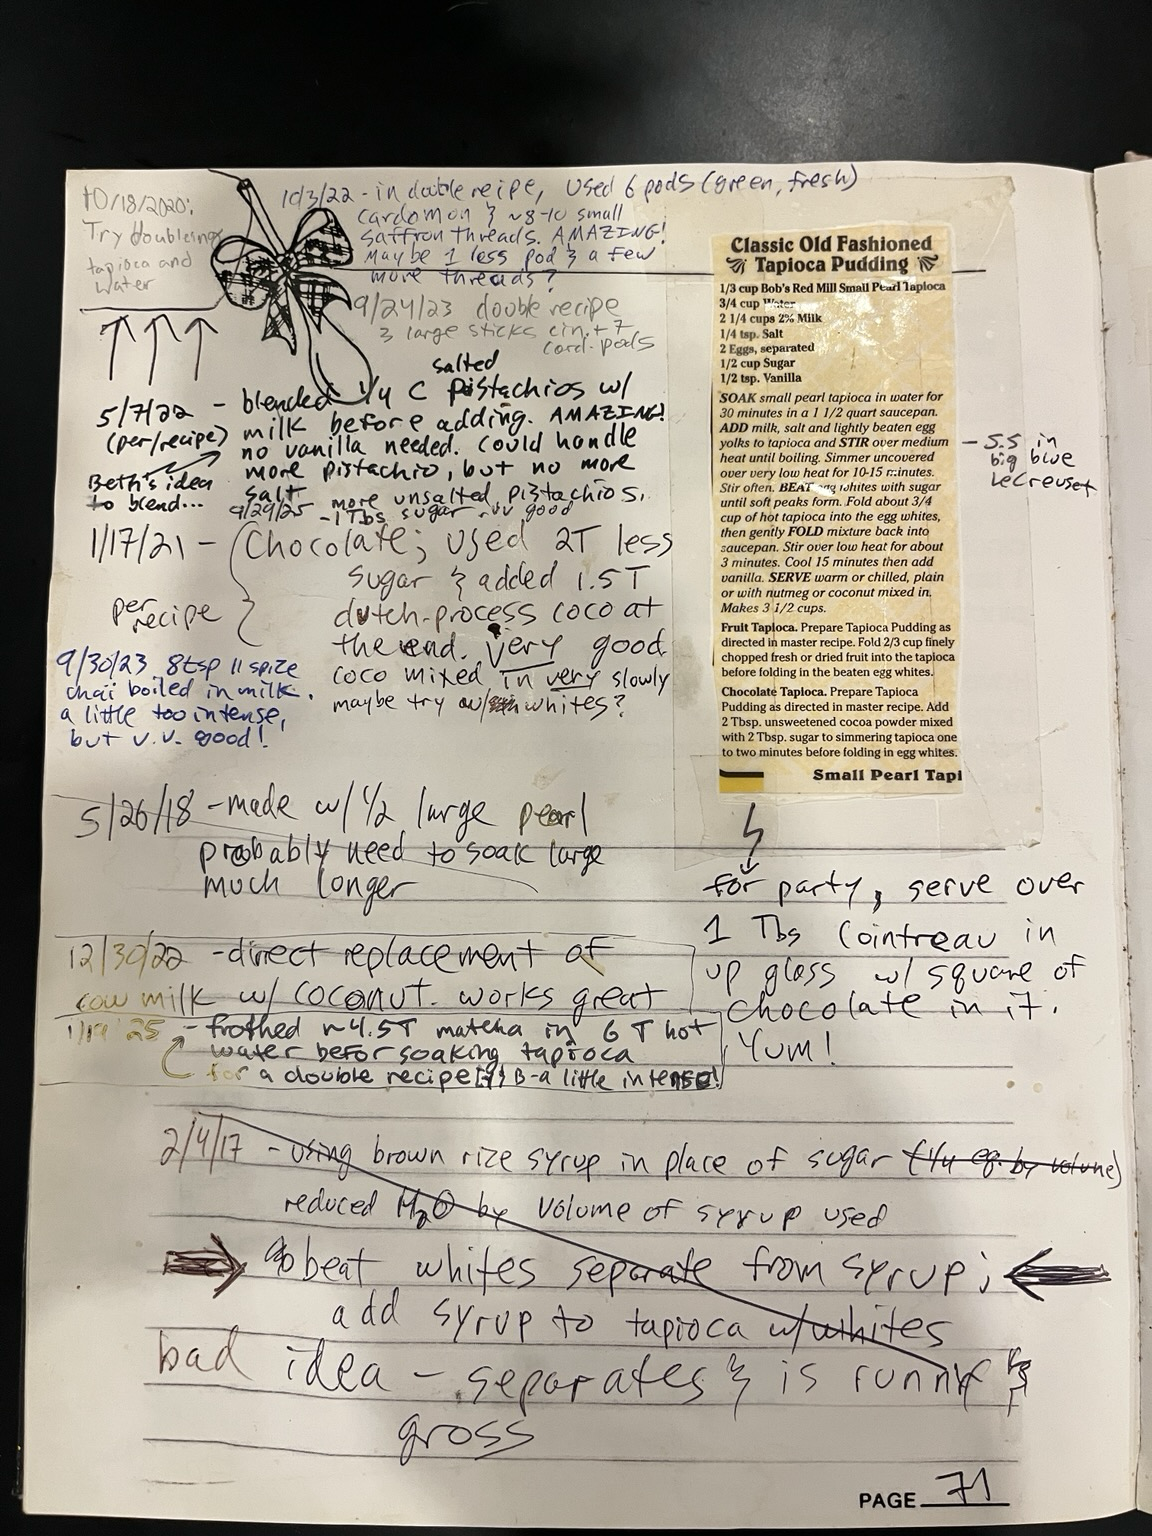 10/18/2020:
Try doubleing
tapioca and
water
10/3/22 - in double recipe, used 6 pods (green, fresh)
cardomon & ~8-10 small
saffron threads. AMAZING!
Maybe 1 less pod & a few
more threads?
9/24/23 double recipe
3 large sticks cin. + 7
card. pods
salted
5/7/22 - blended 1/4 C pistachios w/
(per/recipe) milk before adding. AMAZING!
no vanilla needed. could handle
Beth's idea more pistachio, but no more
to blend... salt
9/29/25 more unsalted pistachios,
-1 Tbs sugar - v.v. good
1/17/21 - Chocolate; used 2T less
sugar & added 1.5T
per dutch-process coco at
recipe the end. Very good.
coco mixed in very slowly
maybe try w/ whites?
9/30/23 8tsp 11 spice
chai boiled in milk.
a little too intense,
but v.v. good!
Classic Old Fashioned
Tapioca Pudding
1/3 cup Bob's Red Mill Small Pearl Tapioca
3/4 cup Water
2 1/4 cups 2% Milk
1/4 tsp. Salt
2 Eggs, separated
1/2 cup Sugar
1/2 tsp. Vanilla
SOAK small pearl tapioca in water for
30 minutes in a 1 1/2 quart saucepan.
ADD milk, salt and lightly beaten egg
yolks to tapioca and STIR over medium
heat until boiling. Simmer uncovered
over very low heat for 10-15 minutes.
Stir often. BEAT egg whites with sugar
until soft peaks form. Fold about 3/4
cup of hot tapioca into the egg whites,
then gently FOLD mixture back into
saucepan. Stir over low heat for about
3 minutes. Cool 15 minutes then add
vanilla. SERVE warm or chilled, plain
or with nutmeg or coconut mixed in.
Makes 3 1/2 cups.
Fruit Tapioca. Prepare Tapioca Pudding as
directed in master recipe. Fold 2/3 cup finely
chopped fresh or dried fruit into the tapioca
before folding in the beaten egg whites.
Chocolate Tapioca. Prepare Tapioca
Pudding as directed in master recipe. Add
2 Tbsp. unsweetened cocoa powder mixed
with 2 Tbsp. sugar to simmering tapioca one
to two minutes before folding in egg whites.
Small Pearl Tapi
- 5.5 in
big blue
LeCreuset
5/26/18 - made w/ 1/2 large pearl
probably need to soak large
much longer
for party, serve over
1 Tbs Cointreau in
up glass w/ square of
chocolate in it.
Yum!
12/30/22 - direct replacement of
cow milk w/ coconut. works great
1/19/25 - frothed ~4.5T matcha in 6 T hot
water befor soaking tapioca
for a double recipe B - a little intense!
2/4/17 - using brown rize syrup in place of sugar (1/4 eq. by volume)
reduced H2O by volume of syrup used
beat whites separate from syrup;
add syrup to tapioca w/ whites
bad idea - separates & is runny &
gross
PAGE 71